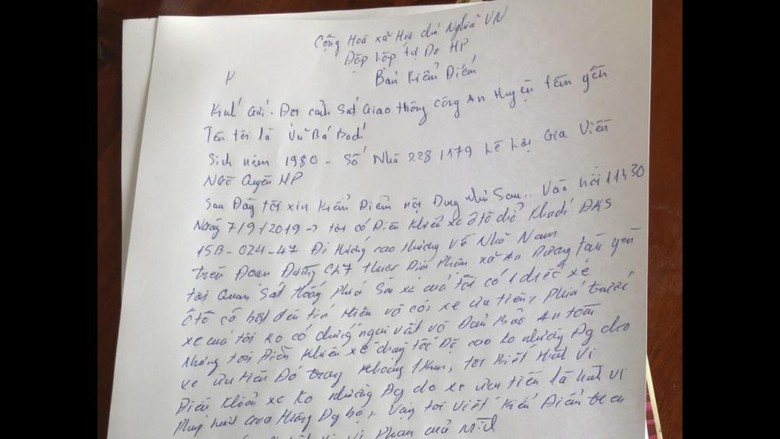 Cộng Hoà xã Hội chủ Nghĩa VN
Độc Lập tự Do HP
Bản Kiểm Điểm
Kính Gửi - Đội cảnh Sát Giao thông công An Huyện Tân yên
Tên tôi là Vũ Bá
Sinh năm 1980 - Số Nhà 228 1179 Lê Lợi Gia Viên
Ngô Quyền HP
Sau Đây tôi xin Kiểm Điểm nội Dung Như Sau.. Vào hồi 11h30
Ngày 7/9/2019 tôi có Điều Khiển xe ôtô chở Khách BKS
15B-024-47 Đi Hướng cao thượng về Nhã Nam
trên Đoạn Đường thuộc Địa Phận xã An Dương tân yên
tôi Quan Sát thấy Phía Sau xe của tôi có 1 chiếc xe
ôtô có bật đèn tín Hiệu và còi xe ưu tiên, Phía trước
xe của tôi ko có chướng ngại vật và Đảm Bảo An toàn
Nhưng tôi Điều Khiển xe chạy tốc Độ cao ko nhường Đg cho
xe ưu tiên Đó trong Khoảng 1Km, tôi Biết Hành Vi
Điều Khiển xe Ko nhường Đg cho xe ưu tiên là hành vi
Đg bộ, Vậy tôi Viết Kiểm Điểm
của mình